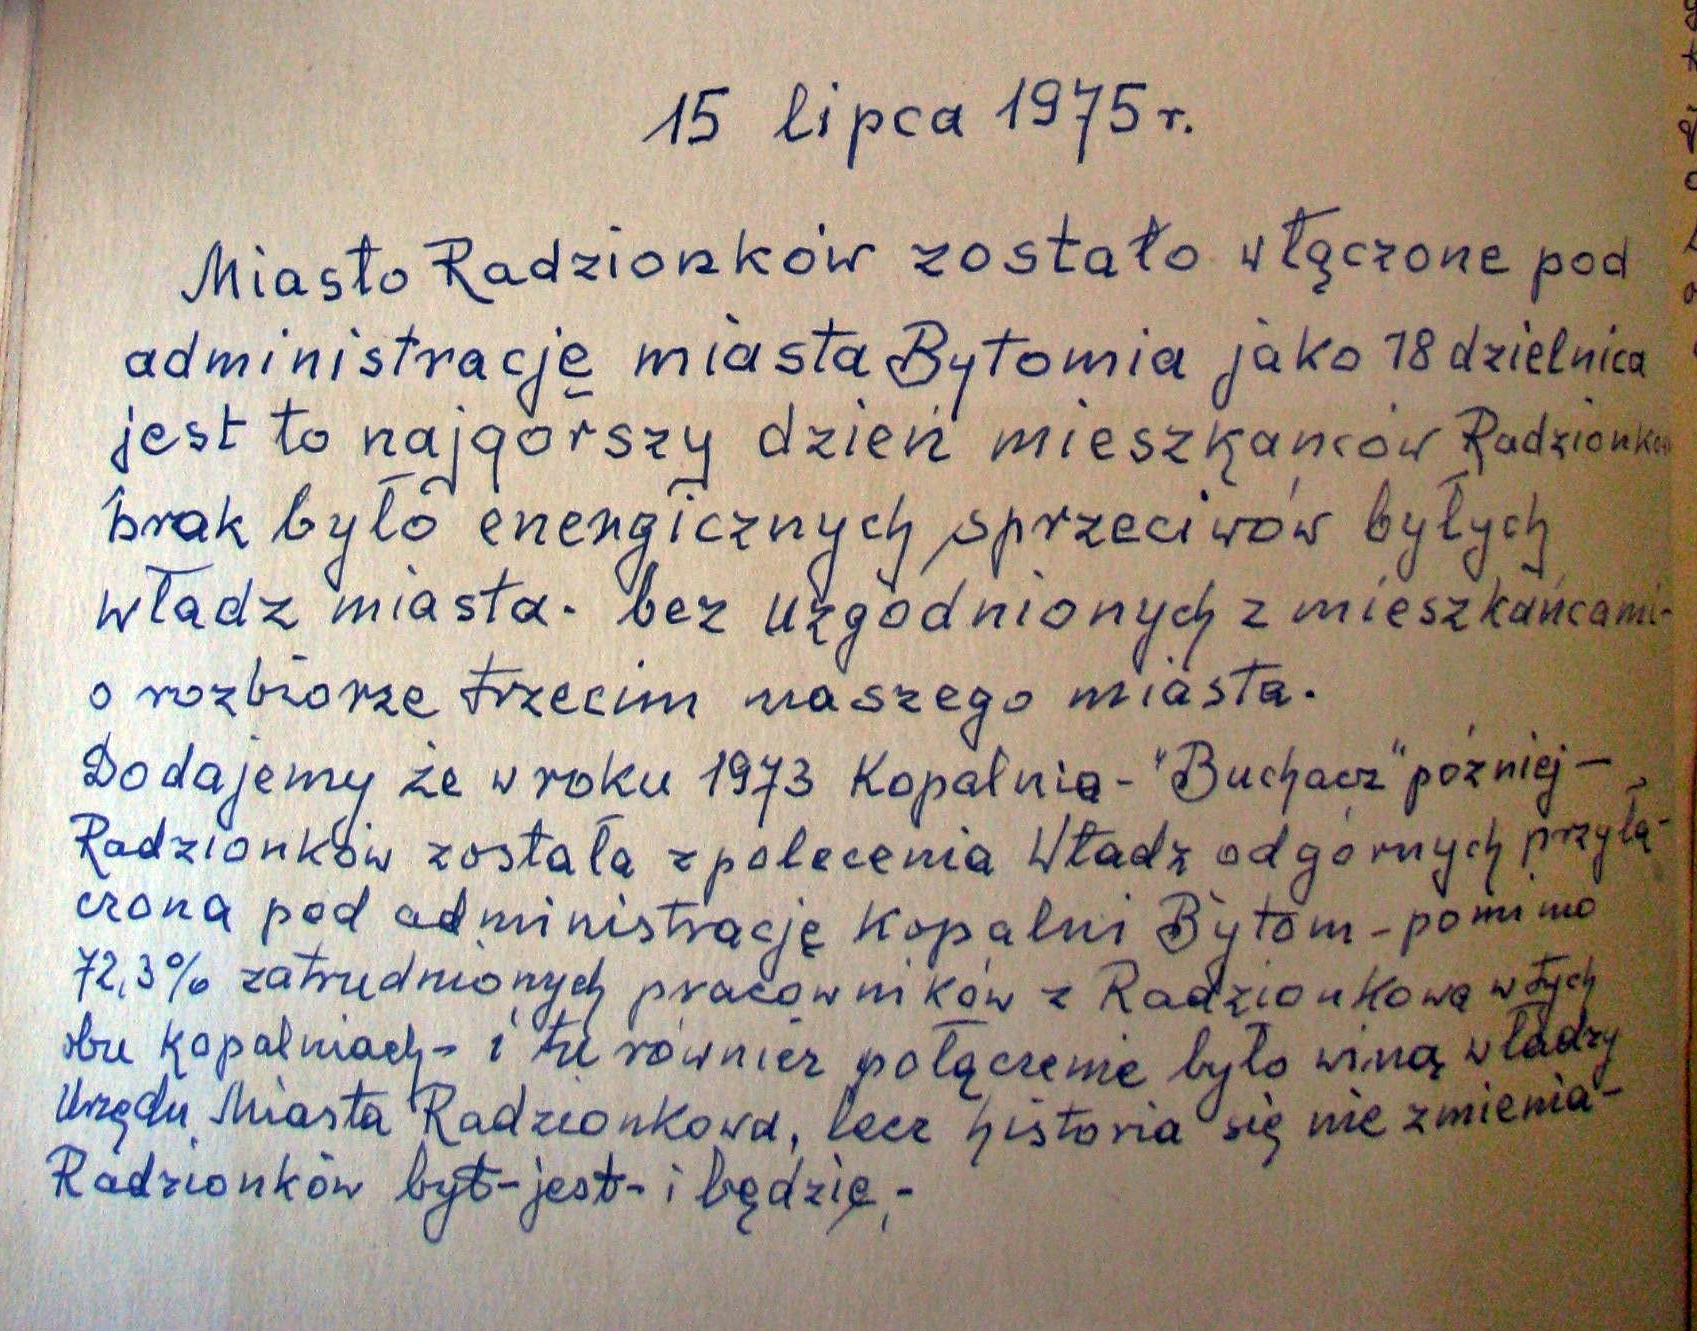 15 lipca 1975 r.
Miasto Radzionków zostało włączone pod
administrację miasta Bytomia jako 18 dzielnica
jest to najgorszy dzień mieszkańców Radzionkow
brak było energicznych sprzeciwów byłych
władz miasta. bez uzgodnionych z mieszkańcami-
o rozbiorze trzecim naszego miasta.
Dodajemy że w roku 1973 Kopalnia - "Buchacz" później -
Radzionków została z polecenia Władz odgórnych przyłą-
czona pod administrację Kopalni Bytom - pomimo
72,3% zatrudnionych pracowników z Radzionkowa w tych
obu kopalniach - i tu również połączenie było winą władzy
Urzędu Miasta Radzionkowa, lecz historia się nie zmienia -
Radzionków był - jest - i będzie, -